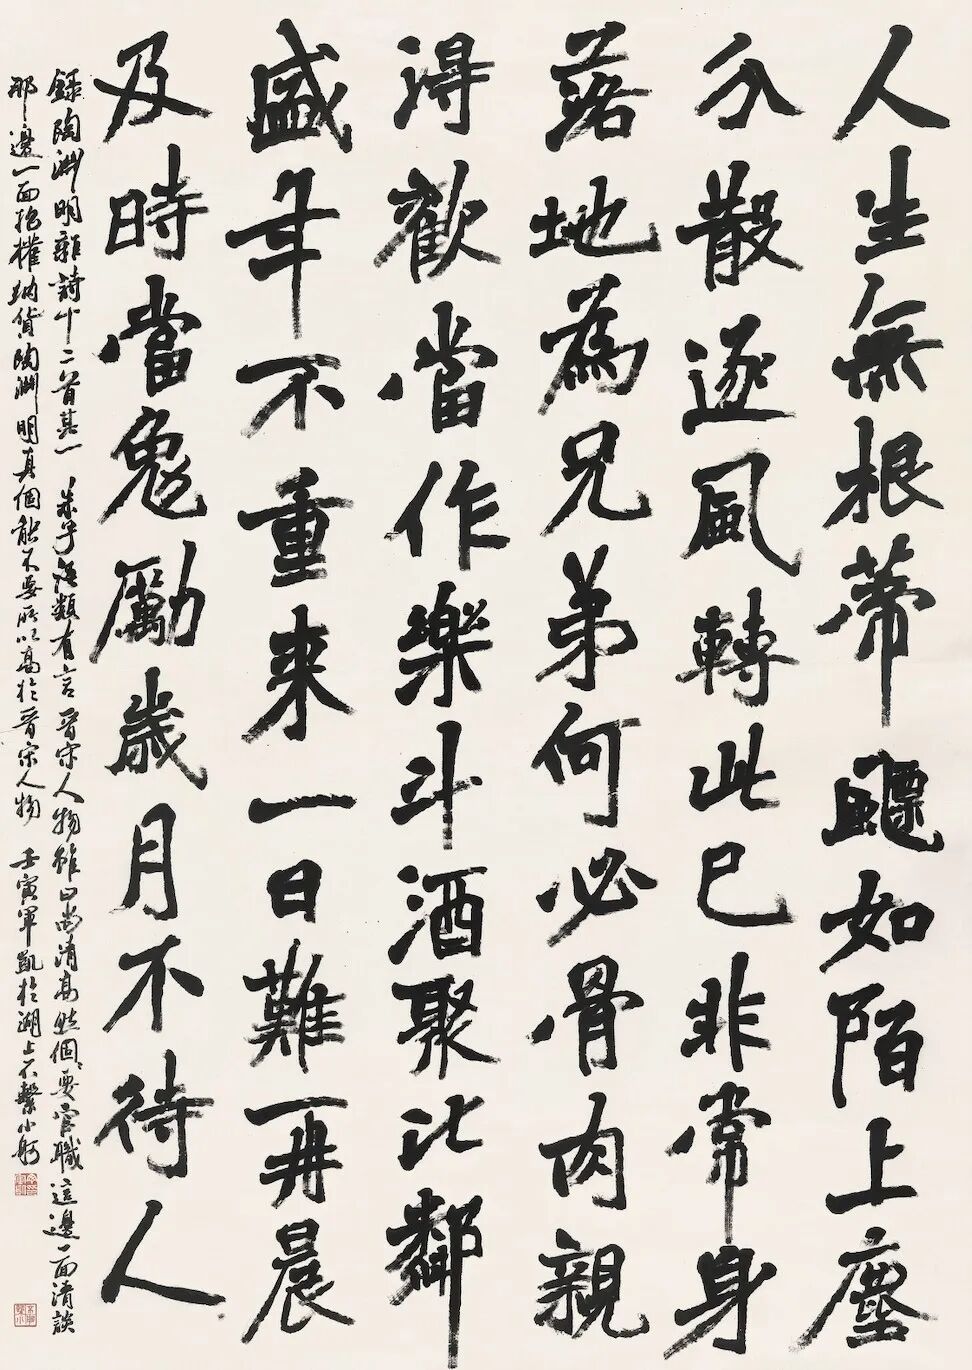 人生無根蒂飄如陌上塵
分散逐風轉此已非常身
落地為兄弟何必骨肉親
得歡當作樂斗酒聚比鄰
盛年不重来一日難再晨
及時當勉勵歲月不待人
錄陶淵明雜詩十二首其一 朱子語類有言晉宋人物雖曰尚清高然個個要官職這邊一面清談
那邊一面招權納貨陶淵明真個能不要所以高於晉宋人物 壬寅軍凱於湖上不繫小舫